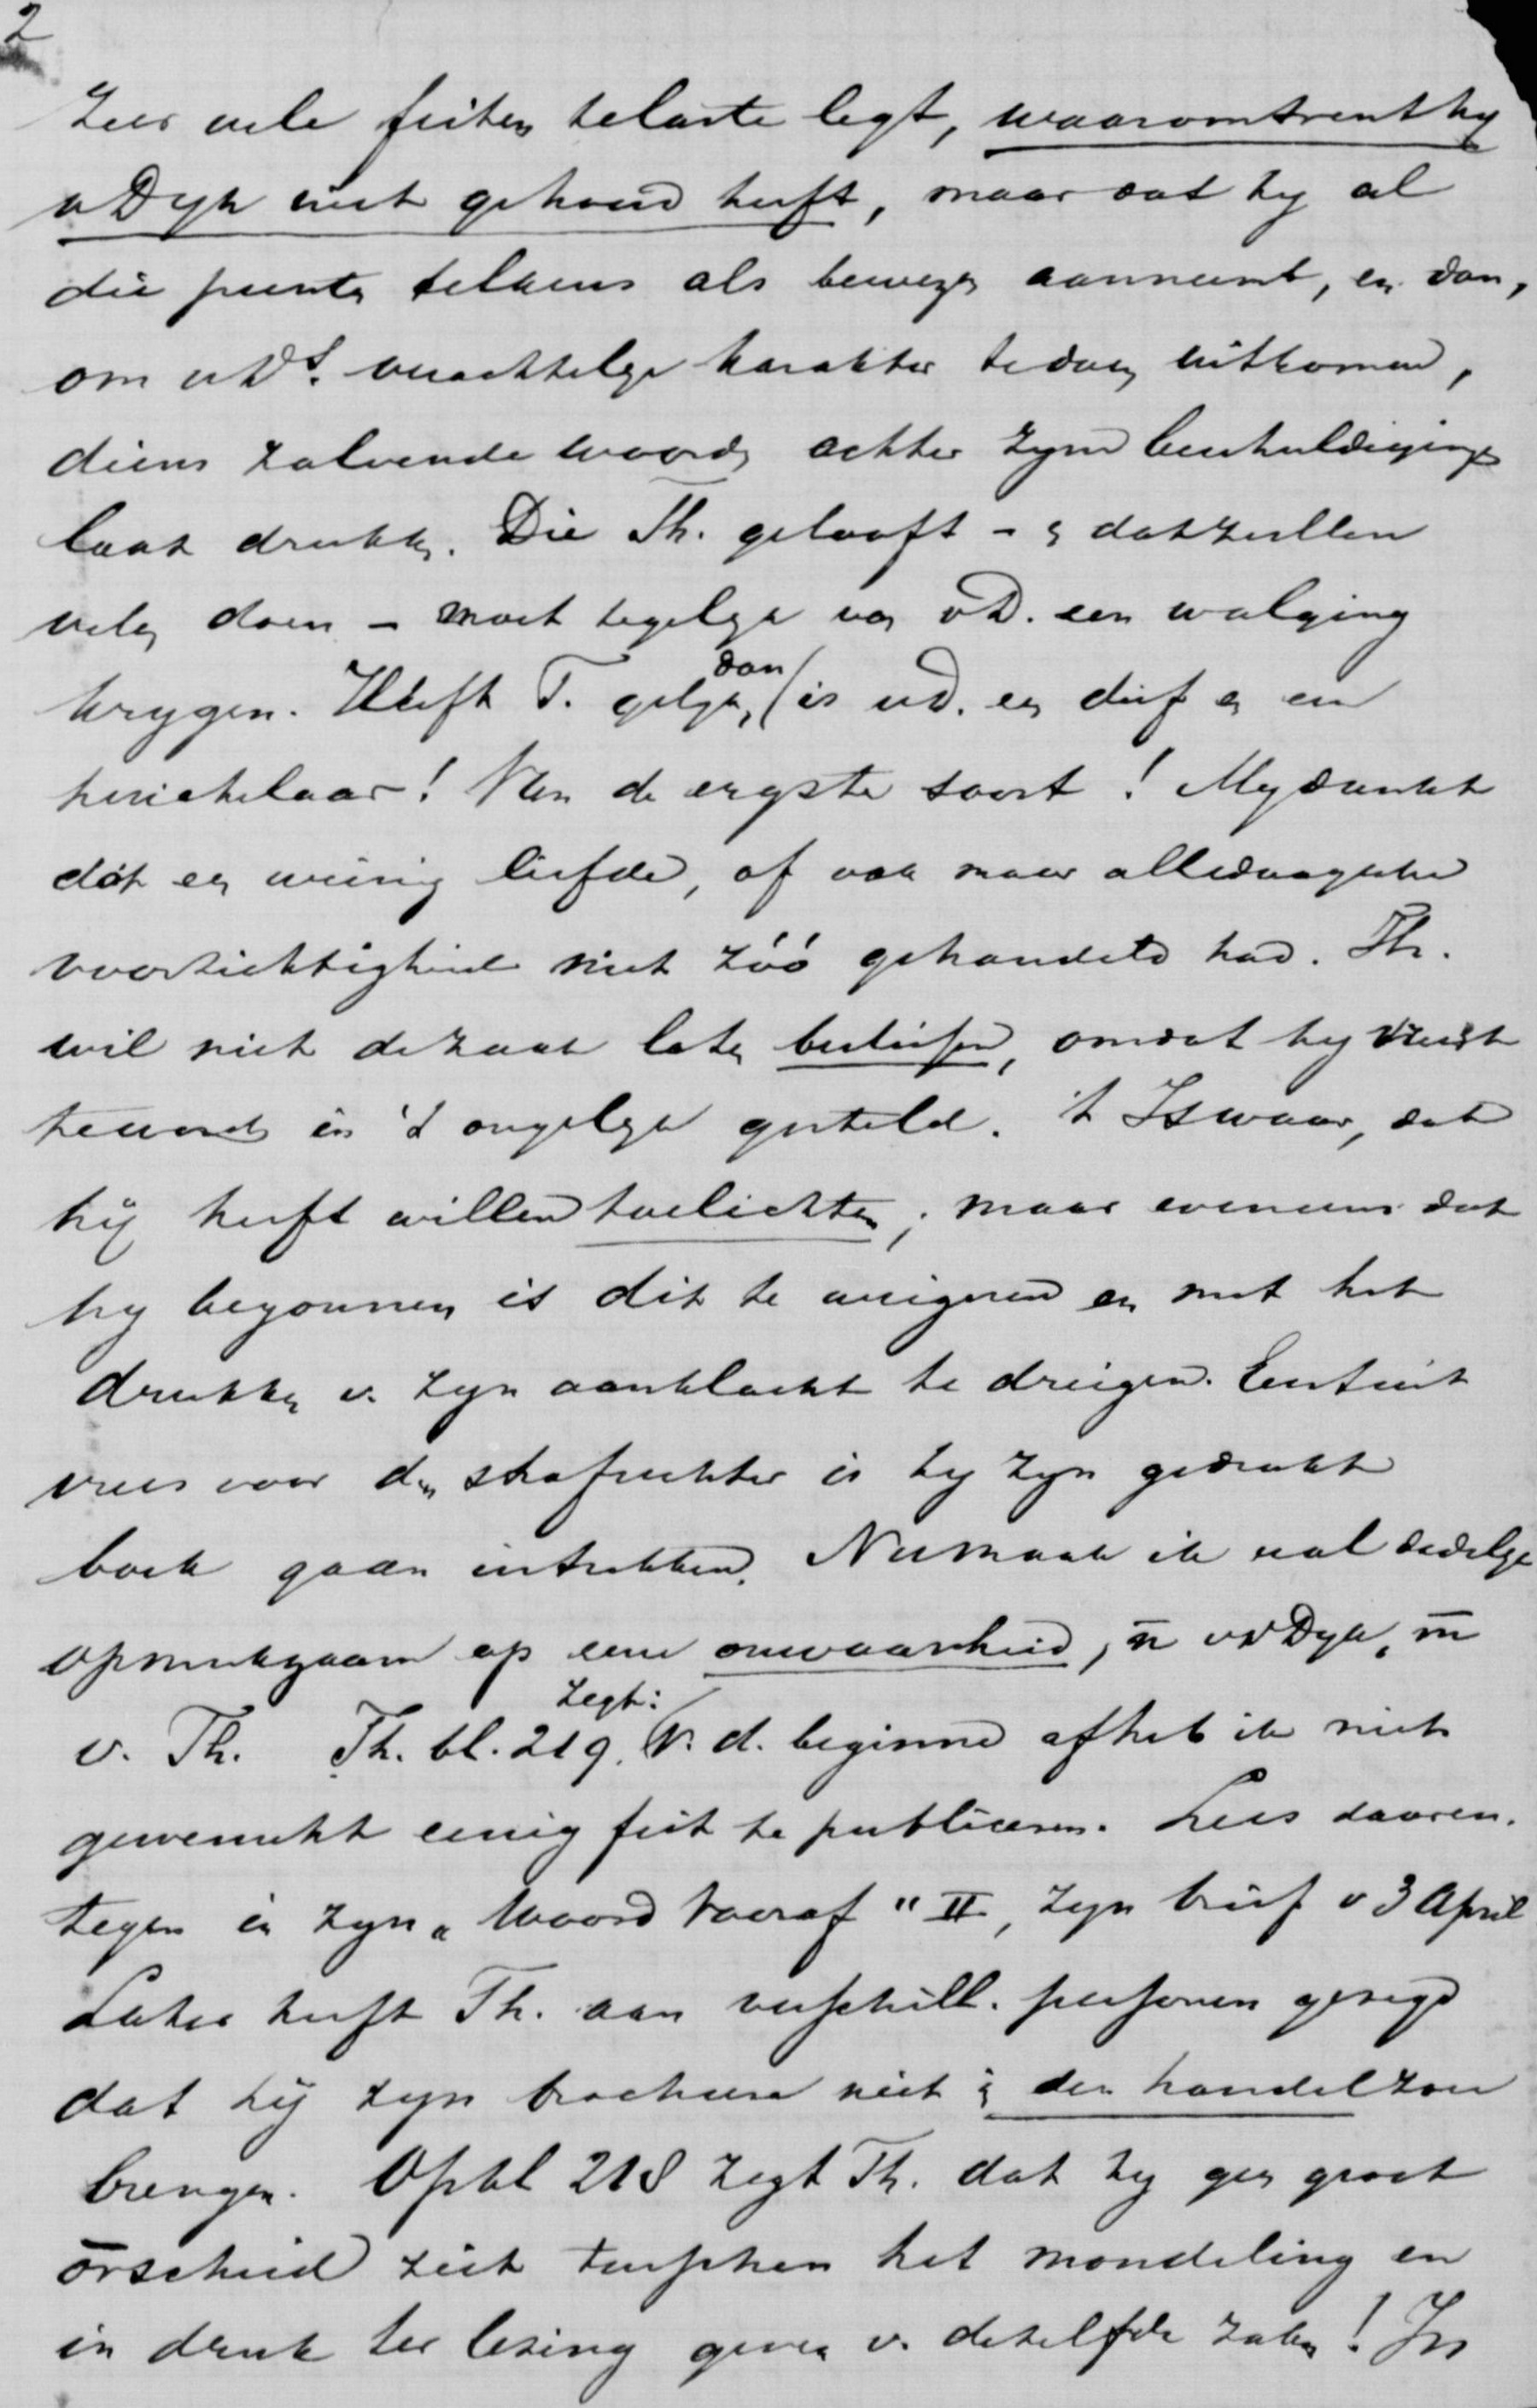 2
zeer vele feiten telaste legt, waaromtrent hy
v Dyk niet gehoord heeft, maar dat hy al
die punten telkens als bewezen aanneemt, en dan,
om v D's. verachtelyk karakter te doen uitkomen,
diens zalvende woorden achter zyne beschuldigingen
laat drukken. Die Th. gelooft – en dat zullen
velen doen – moet tegelyk van v D. een walging
krygen. Heeft T. gelyk, dan is v D. een dief en een
huichelaar! Van de ergste soort! My dunkt
dat een weinig liefde, of ook maar alledaagsche
voorzichtigheid niet zóó gehandeld had. Th.
wil niet de zaak laten beslissen, omdat hy vreest
te worden in 't ongelyk gesteld. 't Is waar, dat
hy heeft willen toelichten; maar eveneens dat
hy begonnen is dit te weigeren en met het
drukken v. zyn aanklacht te dreigen. Eerst uit
vrees voor den strafrechter is hy zyn gedrukt
boek gaan intrekken. Nu maak ik u al dadelyk
opmerkzaam op eene onwaarheid, n v D Dyk, m
v. Th. Th. bl. 219. zegt: V. d. beginne af heb ik niet
gewenscht eenig feit te publiceren. Lees daaren.
tegen in zyn „Woord Vooraf" II, zyn brief v 3 April
Later heeft Th. aan verschill. personen gezegd
dat hy zyn brochure niet in den handel zou
brengen. Op bl 218 zegt Th. dat hy geen groot
orscheid ziet tusschen het mondeling en
in druk ter lezing geven v. dezelfde zaken! In